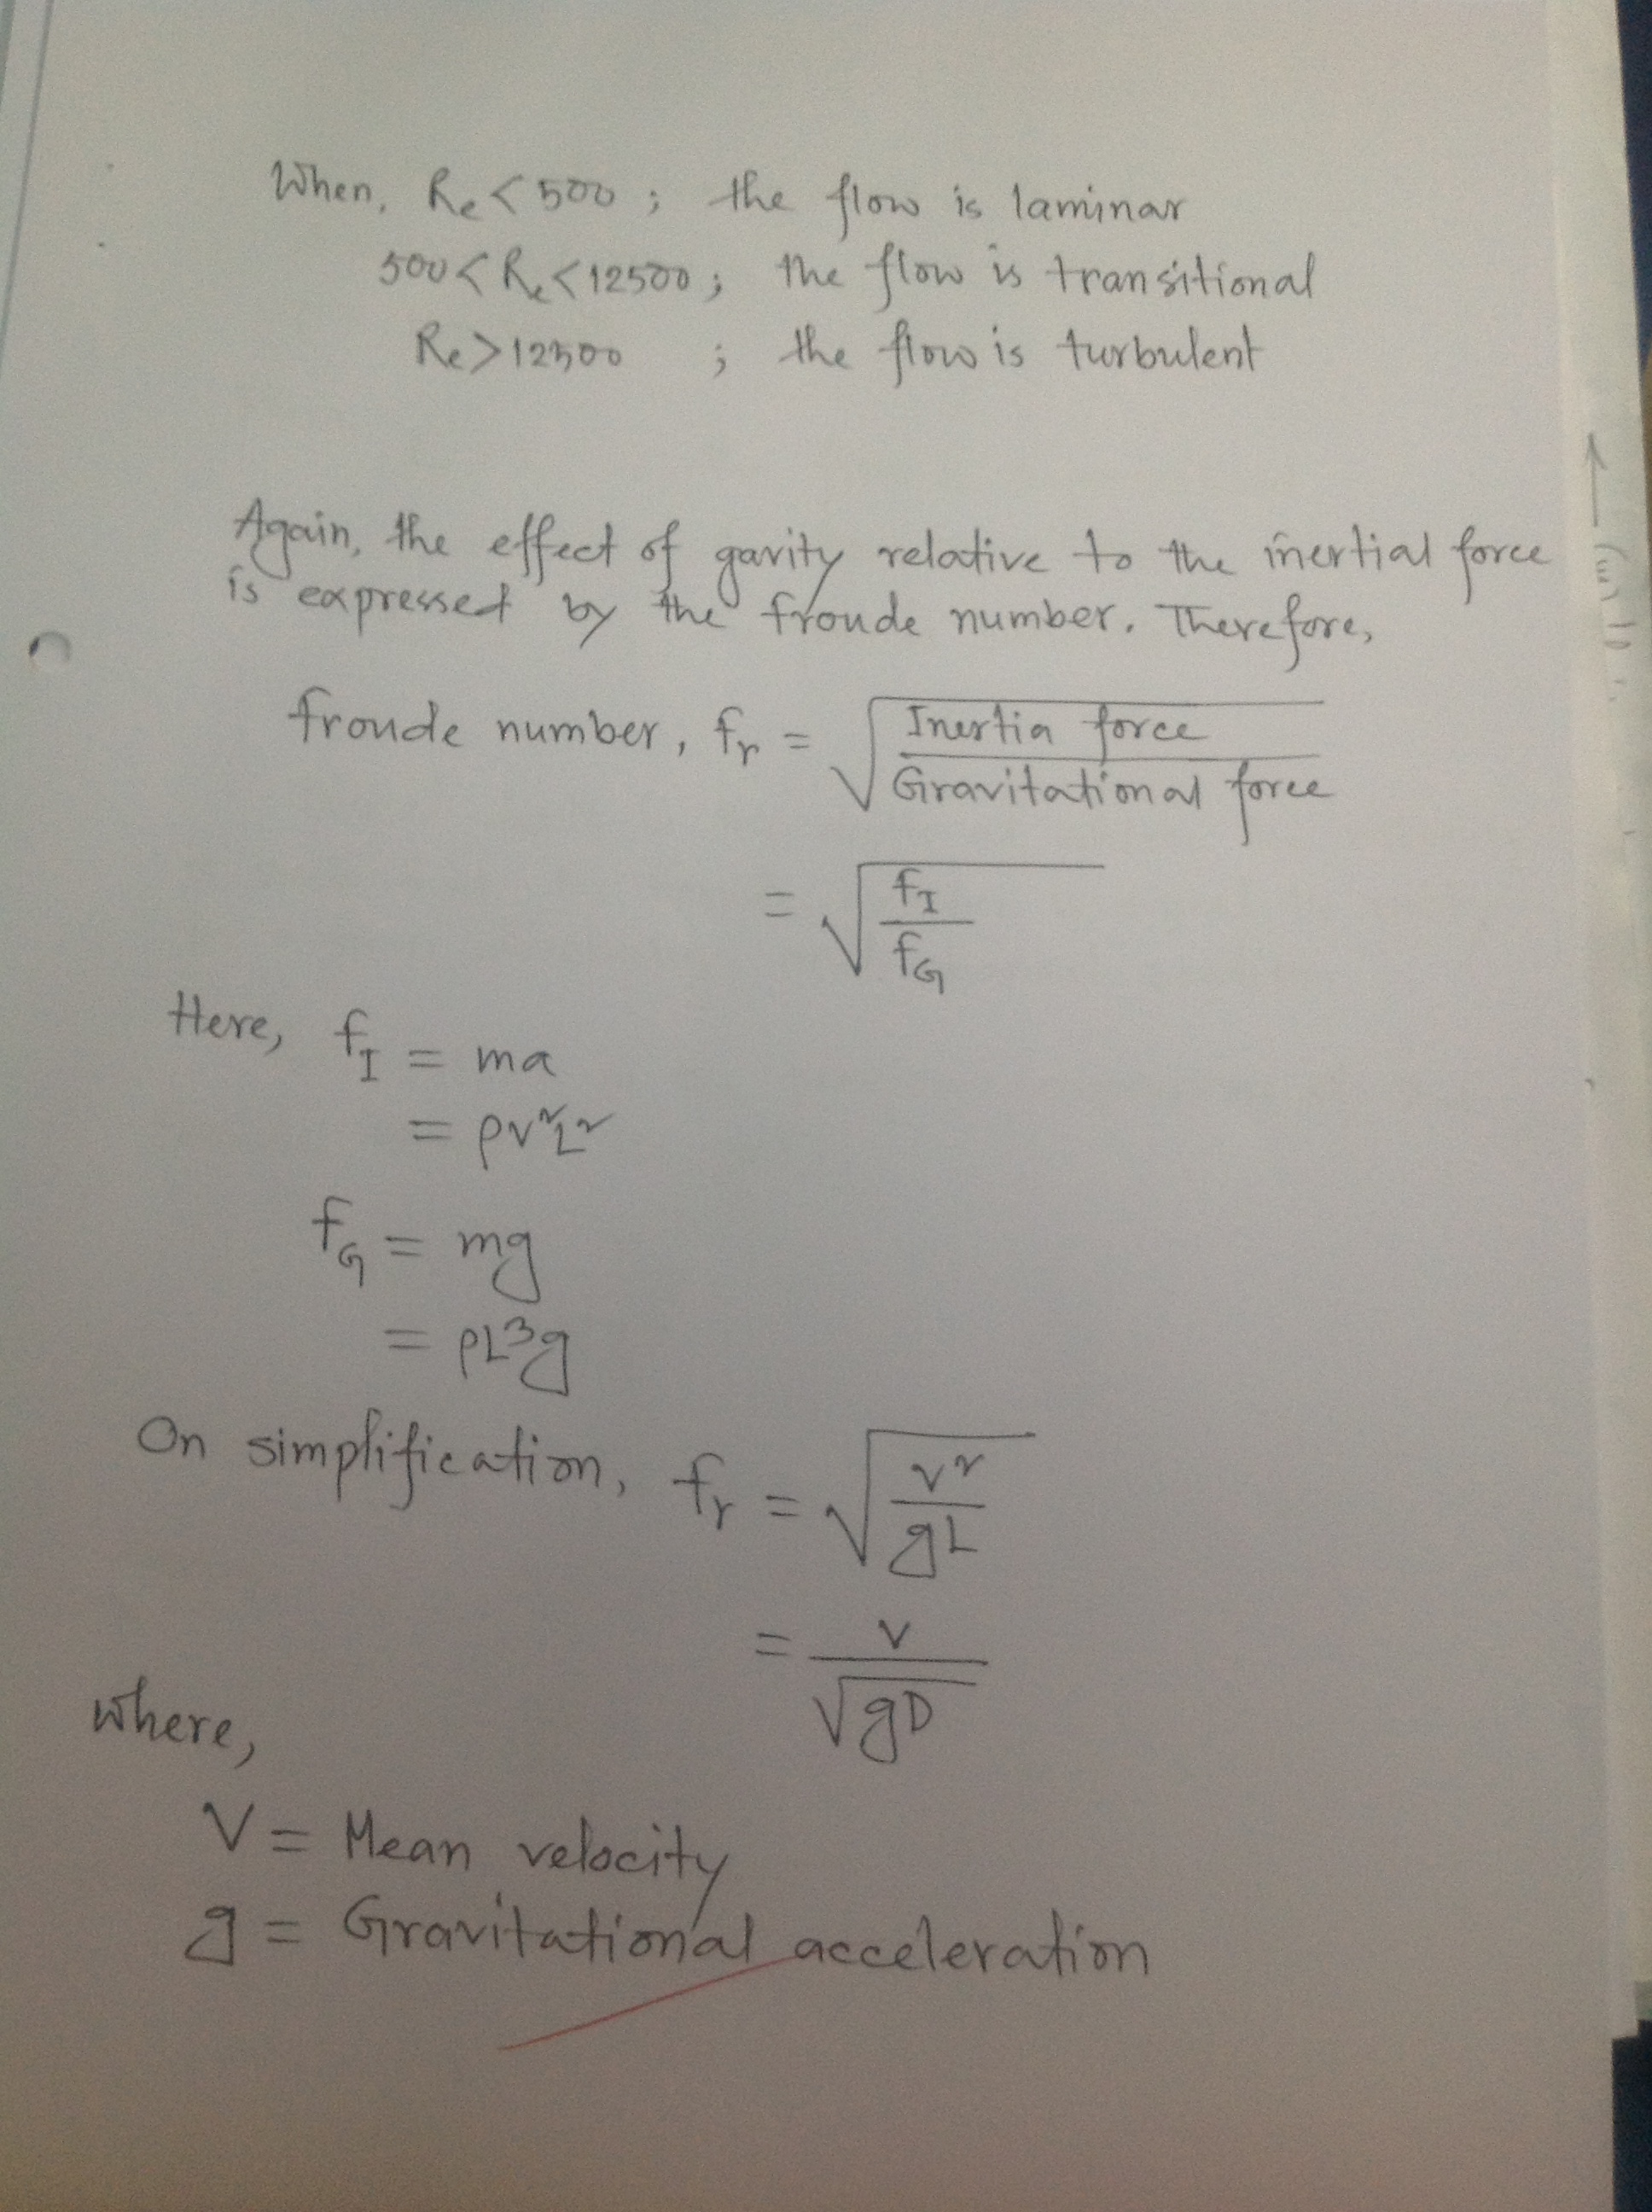 When, Re < 500 ; the flow is laminar
500 < Re < 12500 ; the flow is transitional
Re > 12500 ; the flow is turbulent
Again, the effect of gavity relative to the inertial force
is expressed by the froude number. Therefore,
froude number, fr = √(Inertia force / Gravitational force)
= √(fI / fG)
Here, fI = ma
= ρv²L²
fG = mg
= ρL³g
On simplification, fr = √(v² / gL)
= v / √gD
where,
V = Mean velocity
g = Gravitational acceleration